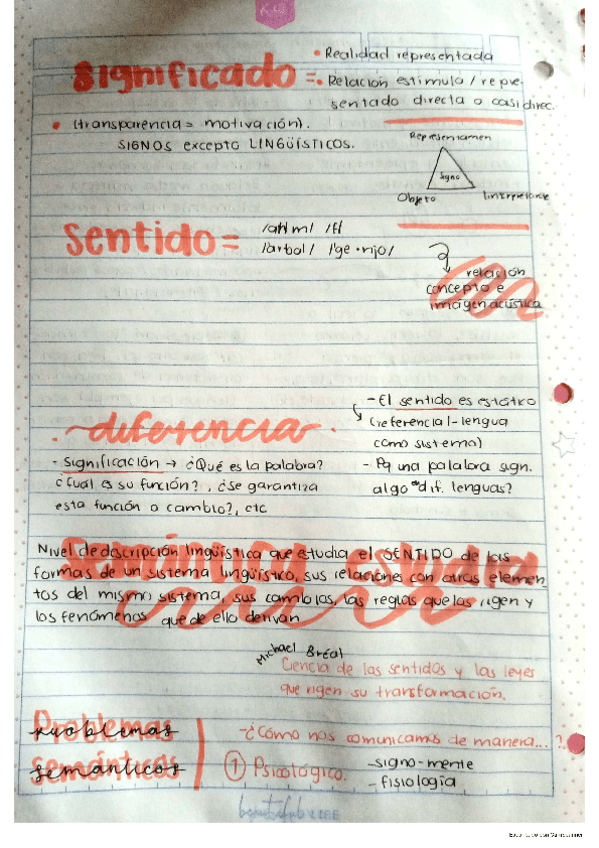 • Realidad representada
significado = • Relación estímulo / repre-
sentado directa o casi direc.
• (transparencia = motivación).
SIGNOS excepto LINGÜÍSTICOS.
Representamen
signo
Objeto Interpretante
sentido =
/arbol/
relación
concepto e
imágen acústica
diferencia
- El sentido es estático
(referencial - lengua
como sistema)
- significación → ¿Qué es la palabra?
¿Cuál es su función?, ¿Se garantiza
esta función o cambio?, etc
- Pq una palabra sign.
algo dif. lenguas?
semántica estudia
Nivel de descripción lingüística que estudia el SENTIDO de las
formas de un sistema lingüístico, sus relaciones con otros elemen
tos del mismo sistema, sus cambios, las reglas que las rigen y
los fenómenos que de ello derivan
Michael Bréal
Ciencia de los sentidos y las leyes
que rigen su transformación.
Problemas
semánticos
- ¿Cómo nos comunicamos de manera...?
① Psicológico.
- signo - mente
- fisiología